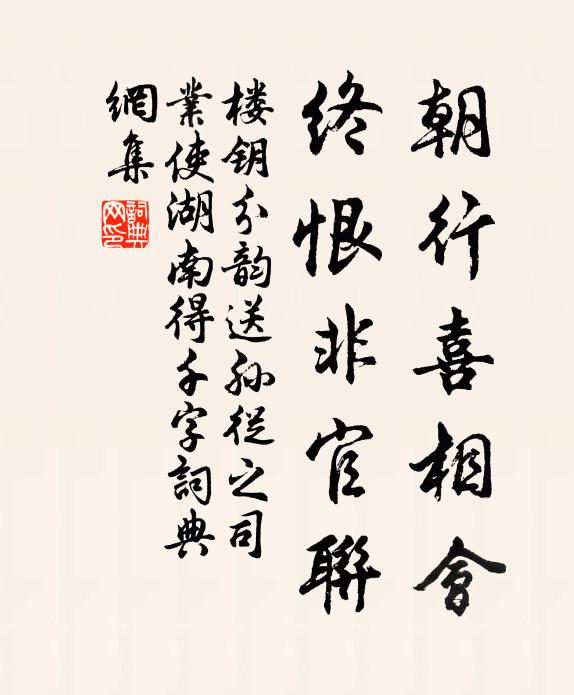 朝行喜相會
終恨非官聯
楼钥分韵送孙從之司
業使湖南得千字詞典
網集
詞典网